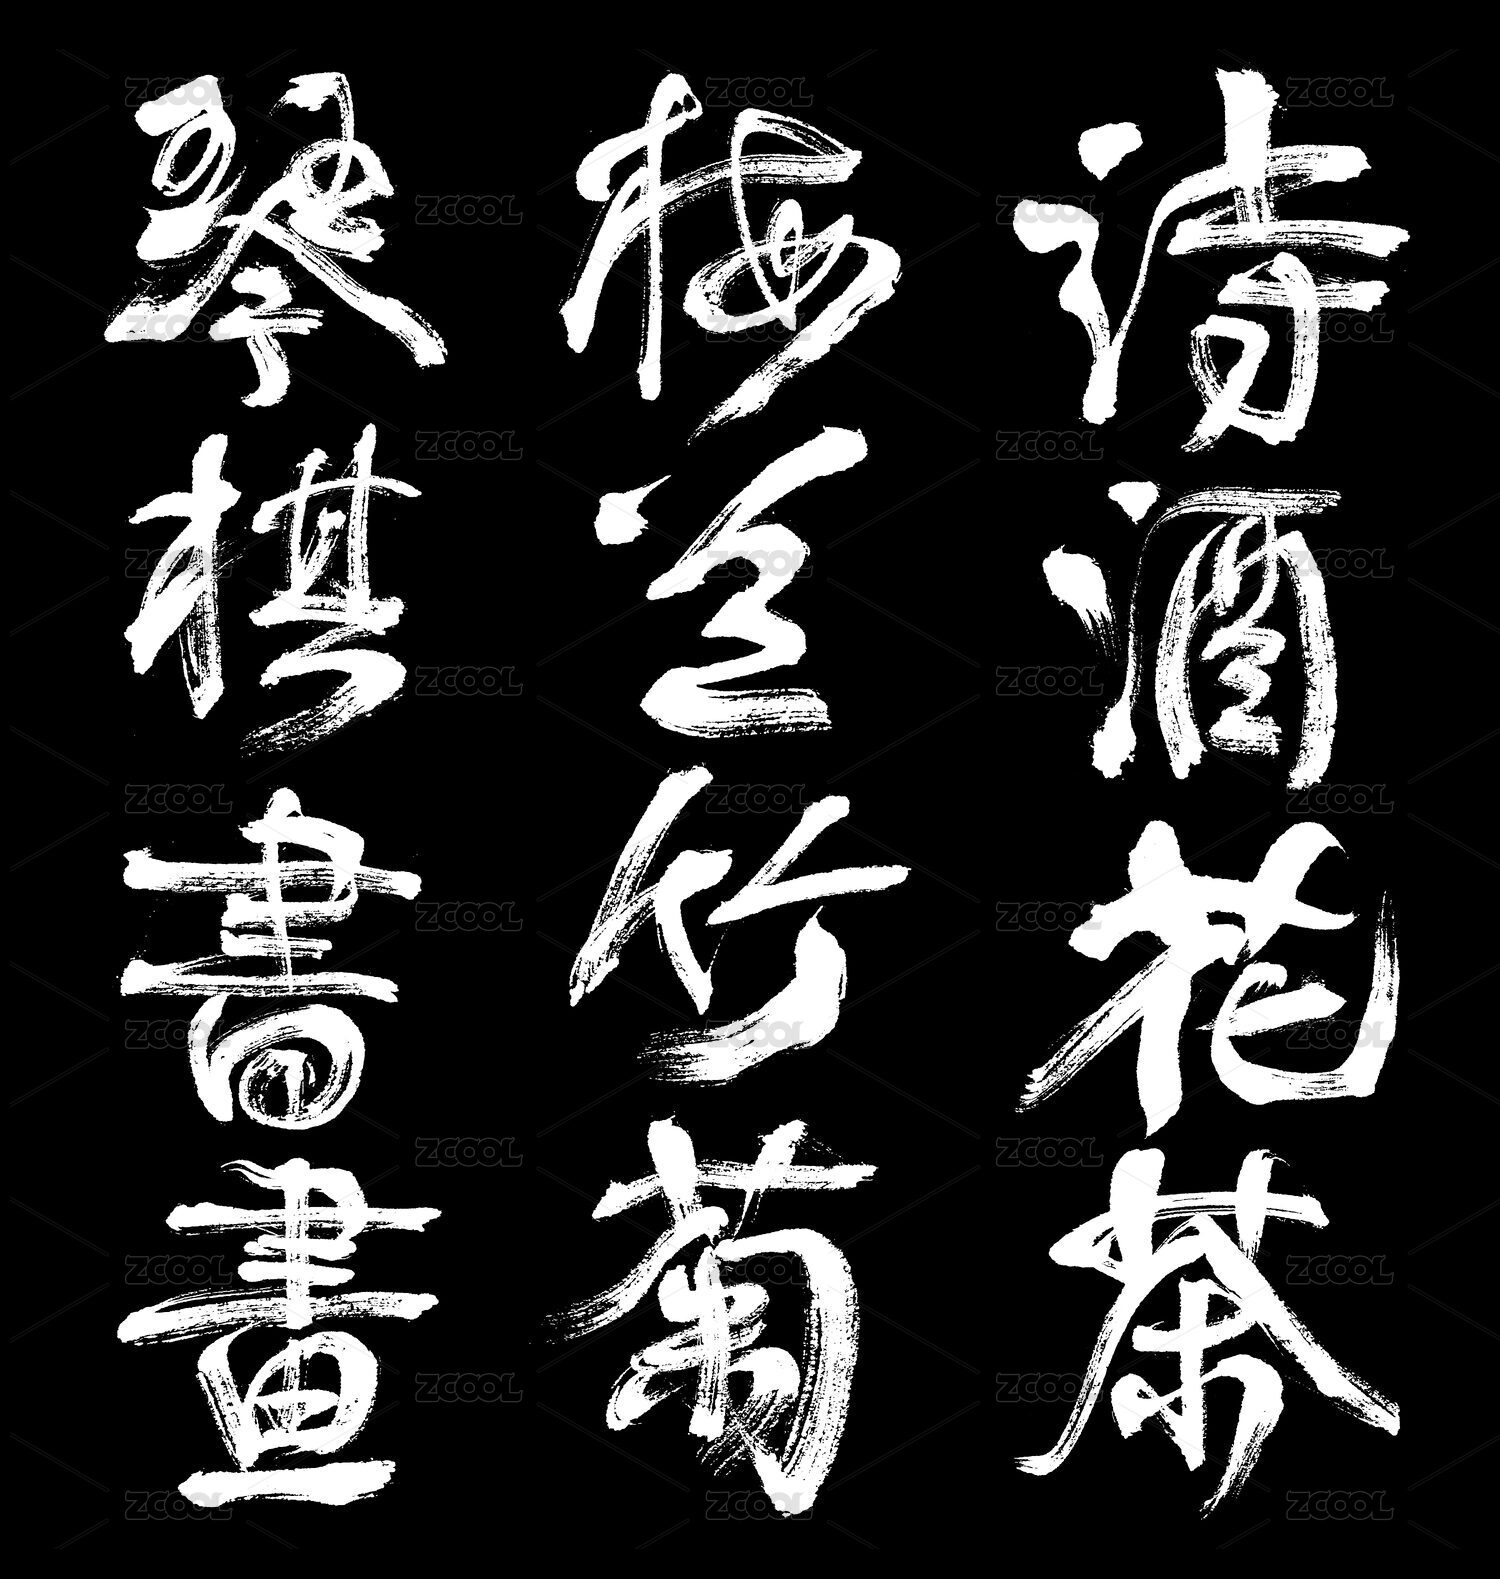 琴棋書畫
梅兰竹菊
诗酒花茶
ZCOOL